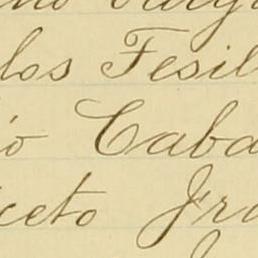 los Fesil
io Caba
ceto Fra